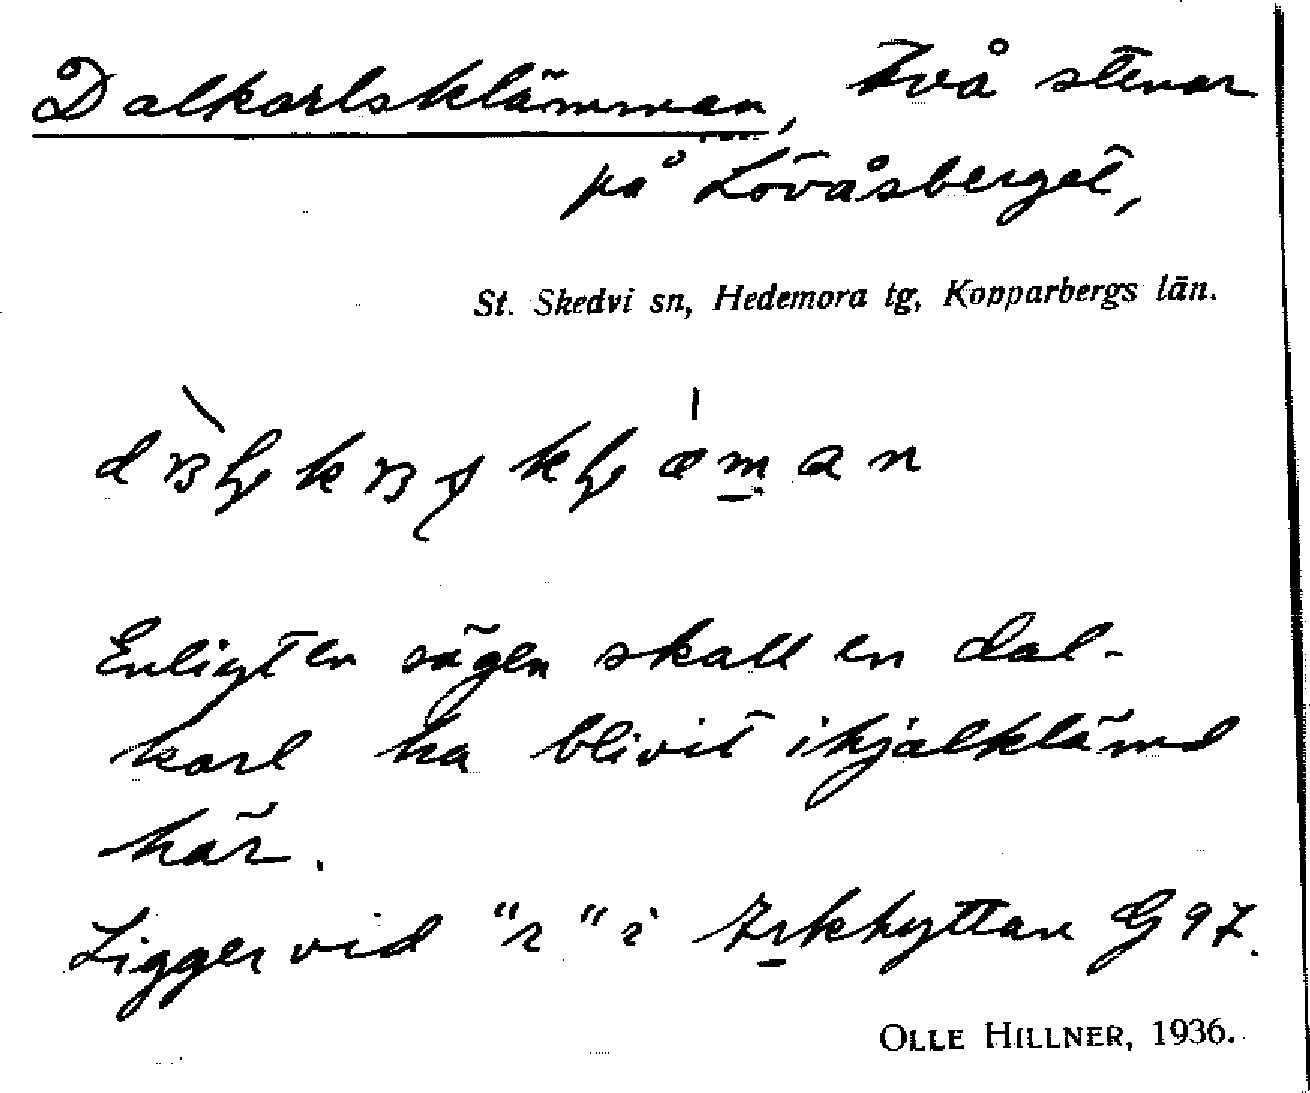 Dalkarlsklämman, Två stenar
på Lövåsberget,
St. Skedvi sn, Hedemora tg, Kopparbergs län.
Enligt en sägen skall en dal-
karl ha blivit ihjälklämd
här.
Ligger vid "r" i Irkhyttan G 97.
OLLE HILLNER, 1936.